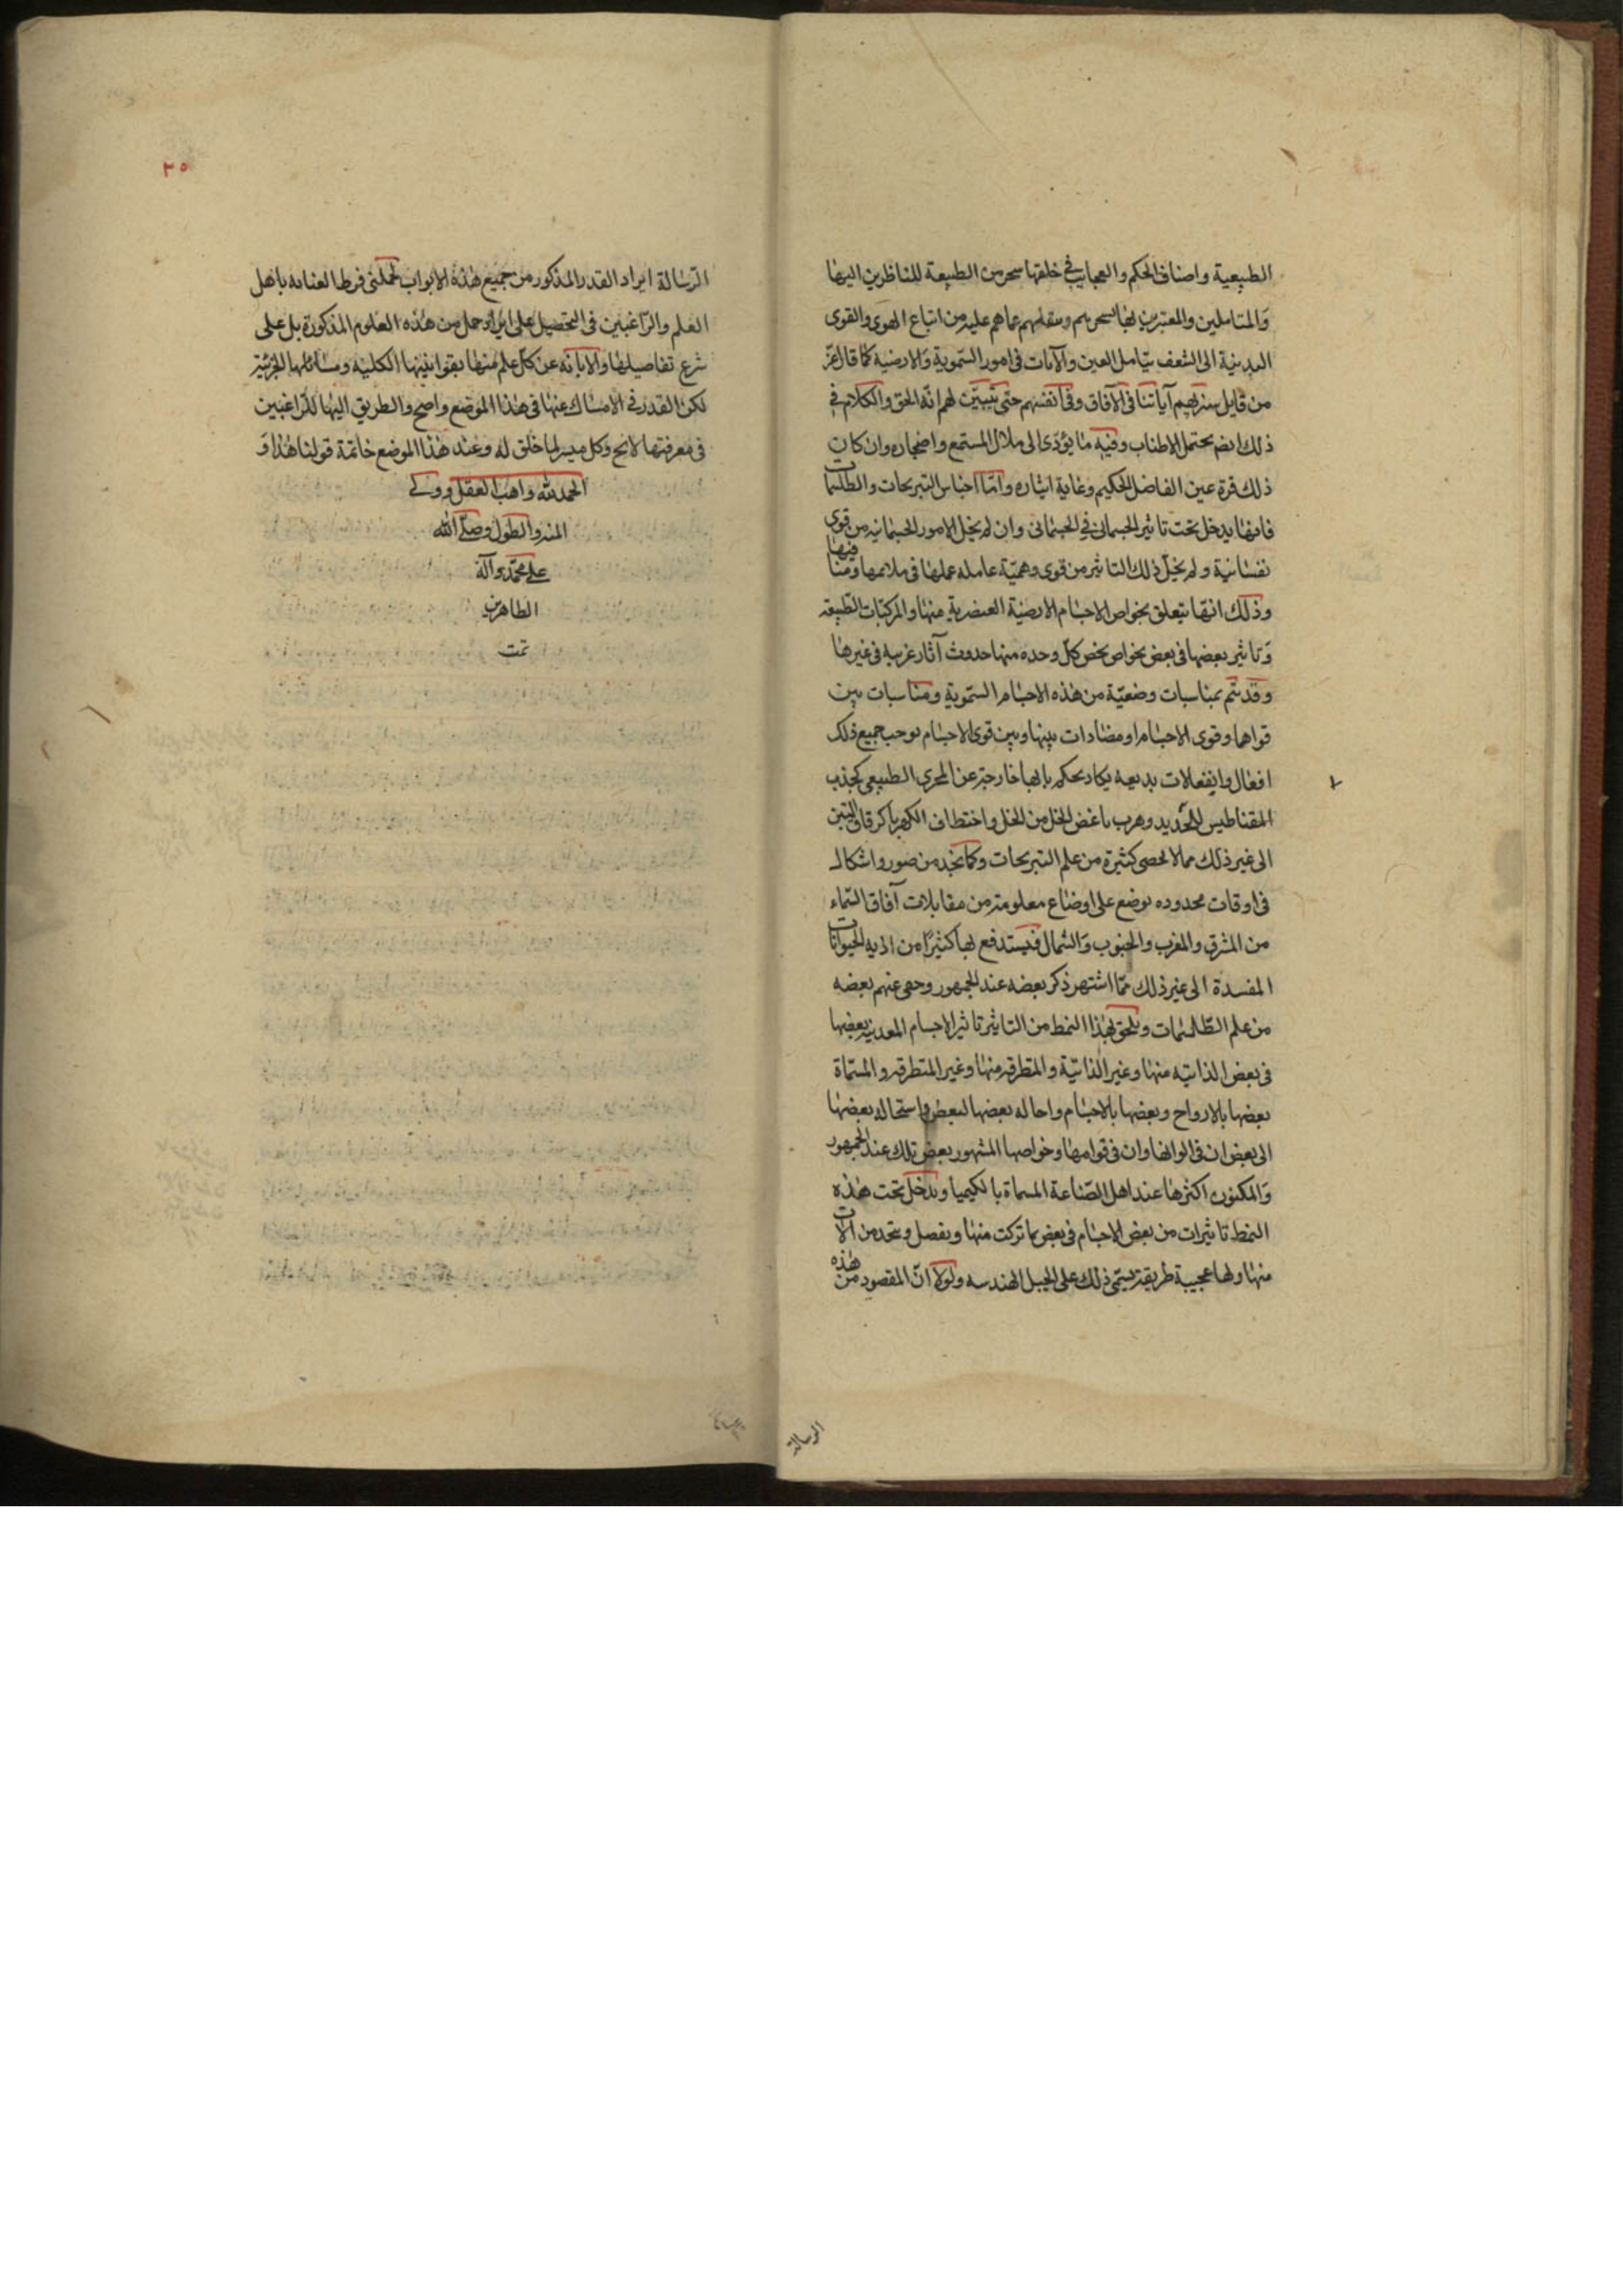 الطبيعية واصناف الحكم والعجايب في خلقتها سحر من الطبيعة للناظرين اليها
والمتاملين والمعتبرين بها لسحرهم وينقلهم عما هم عليه من اتباع الهوى والقوى
البدنية الى الشغف بتامل العين والآيات في امور السموية والارضية كما قال عز
من قايل سنريهم آياتنا في الآفاق وفي انفسهم حتى يتبين لهم انه الحق والكلام في
ذلك ايضا يحتمل الاطناب وفيه ما يؤدى الى ملال المستمع واضجاره وان كان
ذلك قرة عين الفاضل الحكيم وغاية ايثاره واما اجناس النيرنجات والطلسمات
فانها يدخل تحت تاثير الجسمانى في الجسمانى وان لم يخل الامور الجسمانيه من قوى
نفسانية ولم يخل ذلك التاثير من قوى وهمية عاملة عملها في ملايمها ومنافيها
وذلك انها يتعلق بخواص الاجسام الارضية العنصرية منها والمركبات الطبيعه
وتاثير بعضها في بعض بخواص يخص كل وحده منها حدوث آثار غريبه في غيرها
وقد يتم بمناسبات وضعية من هذه الاجسام السموية ومناسبات بين
قواها وقوى الاجسام او مضادات بينها وبين قوى الاجسام يوجب جميع ذلك
افعال وانفعلات بديعه يكاد يحكم بانها خارجة عن المجرى الطبيعى كجذب
المقناطيس للحديد وهرب باغض الخل من الخل واختطاف الكهربا كرقاق التبن
الى غير ذلك مما لا يحصى كثيرة من علم النيرنجات وكما يتخذ من صور واشكال
في اوقات محدوده يوضع على اوضاع معلومة من مقابلات آفاق السماء
من المشرق والمغرب والجنوب والشمال فيستدفع بها كثيرا من اذيه الحيوانات
المفسدة الى غير ذلك مما اشتهر ذكر بعضه عند الجمهور وخفى عنهم بعضه
من علم الطلسمات ويلحق بهذا النمط من التاثير تاثير الاجسام المعدنيه بعضها
في بعض الذائبه منها وغير الذائبة والمتطرقه منها وغير المتطرقه والمسماة
بعضها بالارواح وبعضها بالاجسام واحاله بعضها لبعض واستحاله بعضها
الى بعض ان في الوانها وان في قوامها وخواصها المشهور بعض تلك عند الجمهور
والمكنون اكثرها عند اهل الصناعة المسماة بالكيميا ويدخل تحت هذه
النمط تاثيرات من بعض الاجسام في بعض بما تركت منها ويفصل ويتخذ من آلات
منها ولها عجيبة طريقة يسمى ذلك على الحيل الهندسه ولولا ان المقصود من هذه
الرسالة
٣٥
الرسالة ايراد القدر المذكور من جميع هذه الابواب لحملنى فرط العنايه باهل
العلم والراغبين في التحصيل على ايراد جمل من هذه العلوم المذكورة بل على
شرع تفاصيلها والابانه عن كل علم منها بقوانينها الكليه ومسائلها الجزئية
لكن القدر في الامساك عنها في هذا الموضع واضح والطريق اليها للراغبين
في معرفتها لايح وكل ميسر لما خلق له وعند هذا الموضع خاتمة قولنا هذا و
الحمد لله واهب العقل وولى
المنه والطول وصلى الله
على محمد وآله
الطاهرين
تمت